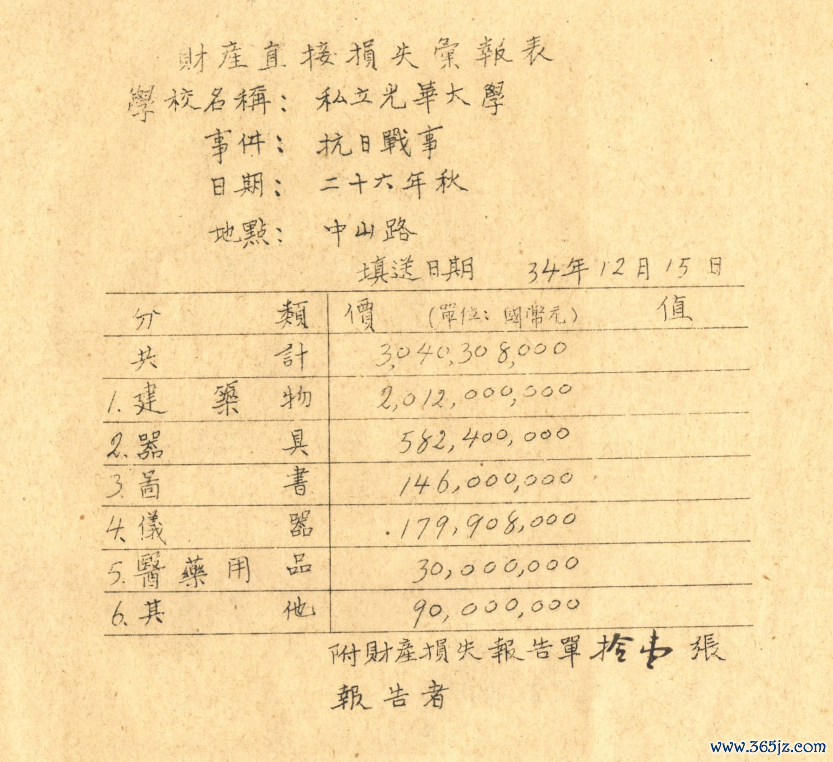 財產直接損失彙報表
學校名稱：私立光華大學
事件：抗日戰事
日期：二十六年秋
地點：中山路
填送日期 34年12月15日
分類 價（單位：國幣元）值
共計 3,040,308,000
1.建築物 2,012,000,000
2.器具 582,400,000
3.圖書 146,000,000
4.儀器 179,908,000
5.醫藥用品 30,000,000
6.其他 90,000,000
附財產損失報告單拾壹張
報告者
www.365jz.com